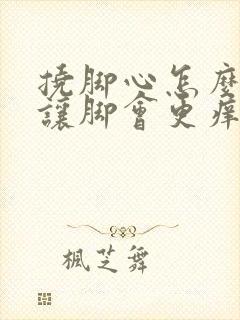 撓脚心怎麼
讓脚會更癢
楓芝舞